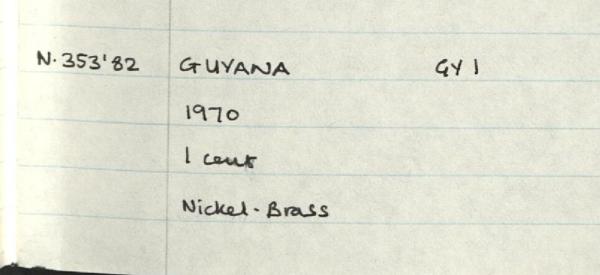 N.353'82 GUYANA GY 1
1970
1 cent
Nickel-Brass